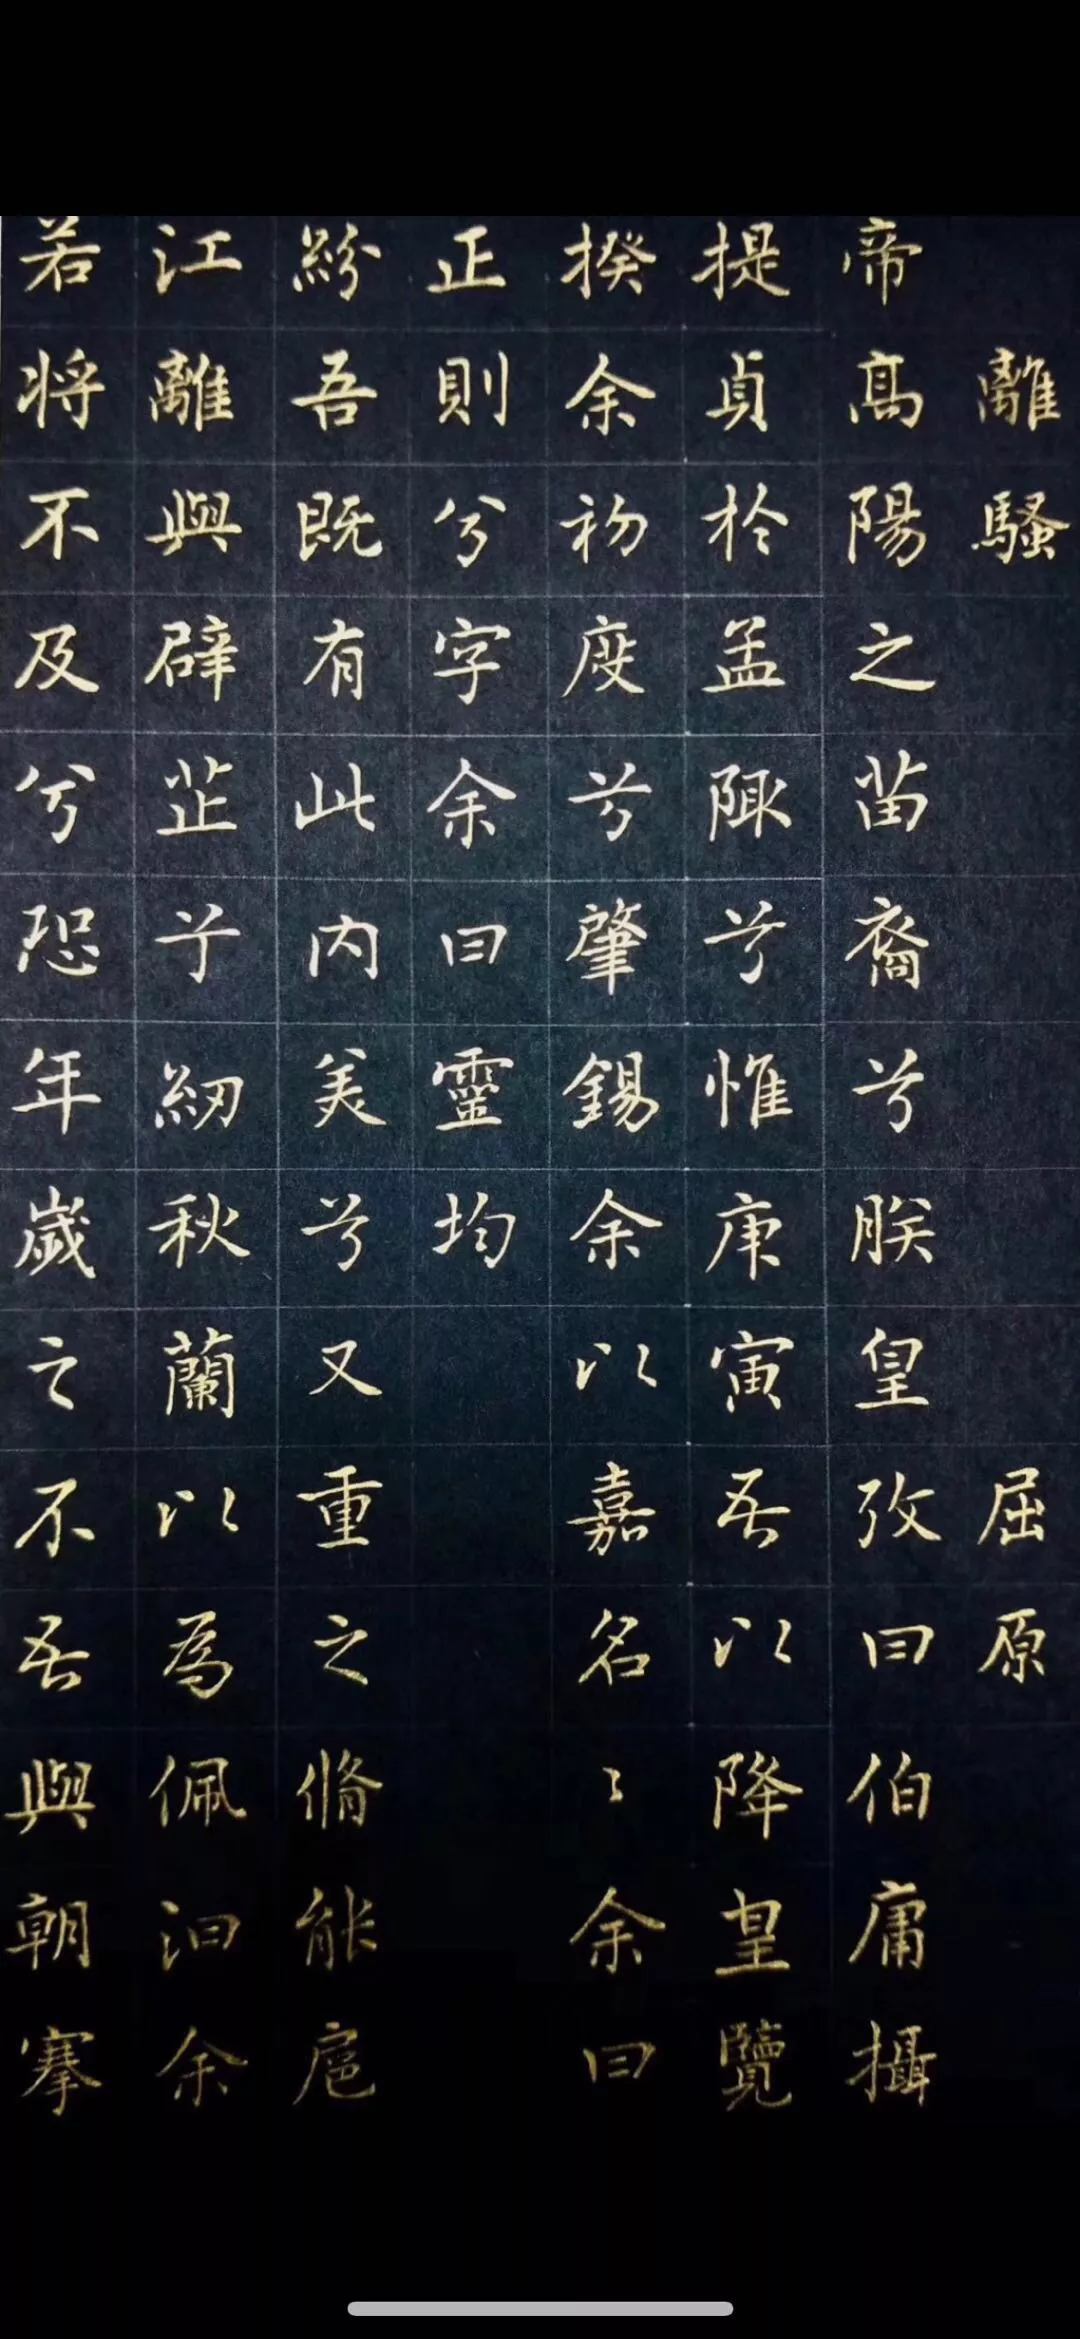 離騷 屈原
帝髙陽之苗裔兮朕皇攷曰伯庸攝
提貞於孟陬兮惟庚寅吾以降皇覽
揆余初度兮肇錫余以嘉名〻余曰
正則兮字余曰靈均
紛吾既有此内美兮又重之脩能扈
江離與辟芷兮紉秋蘭以為佩汩余
若将不及兮恐年歲之不吾與朝搴